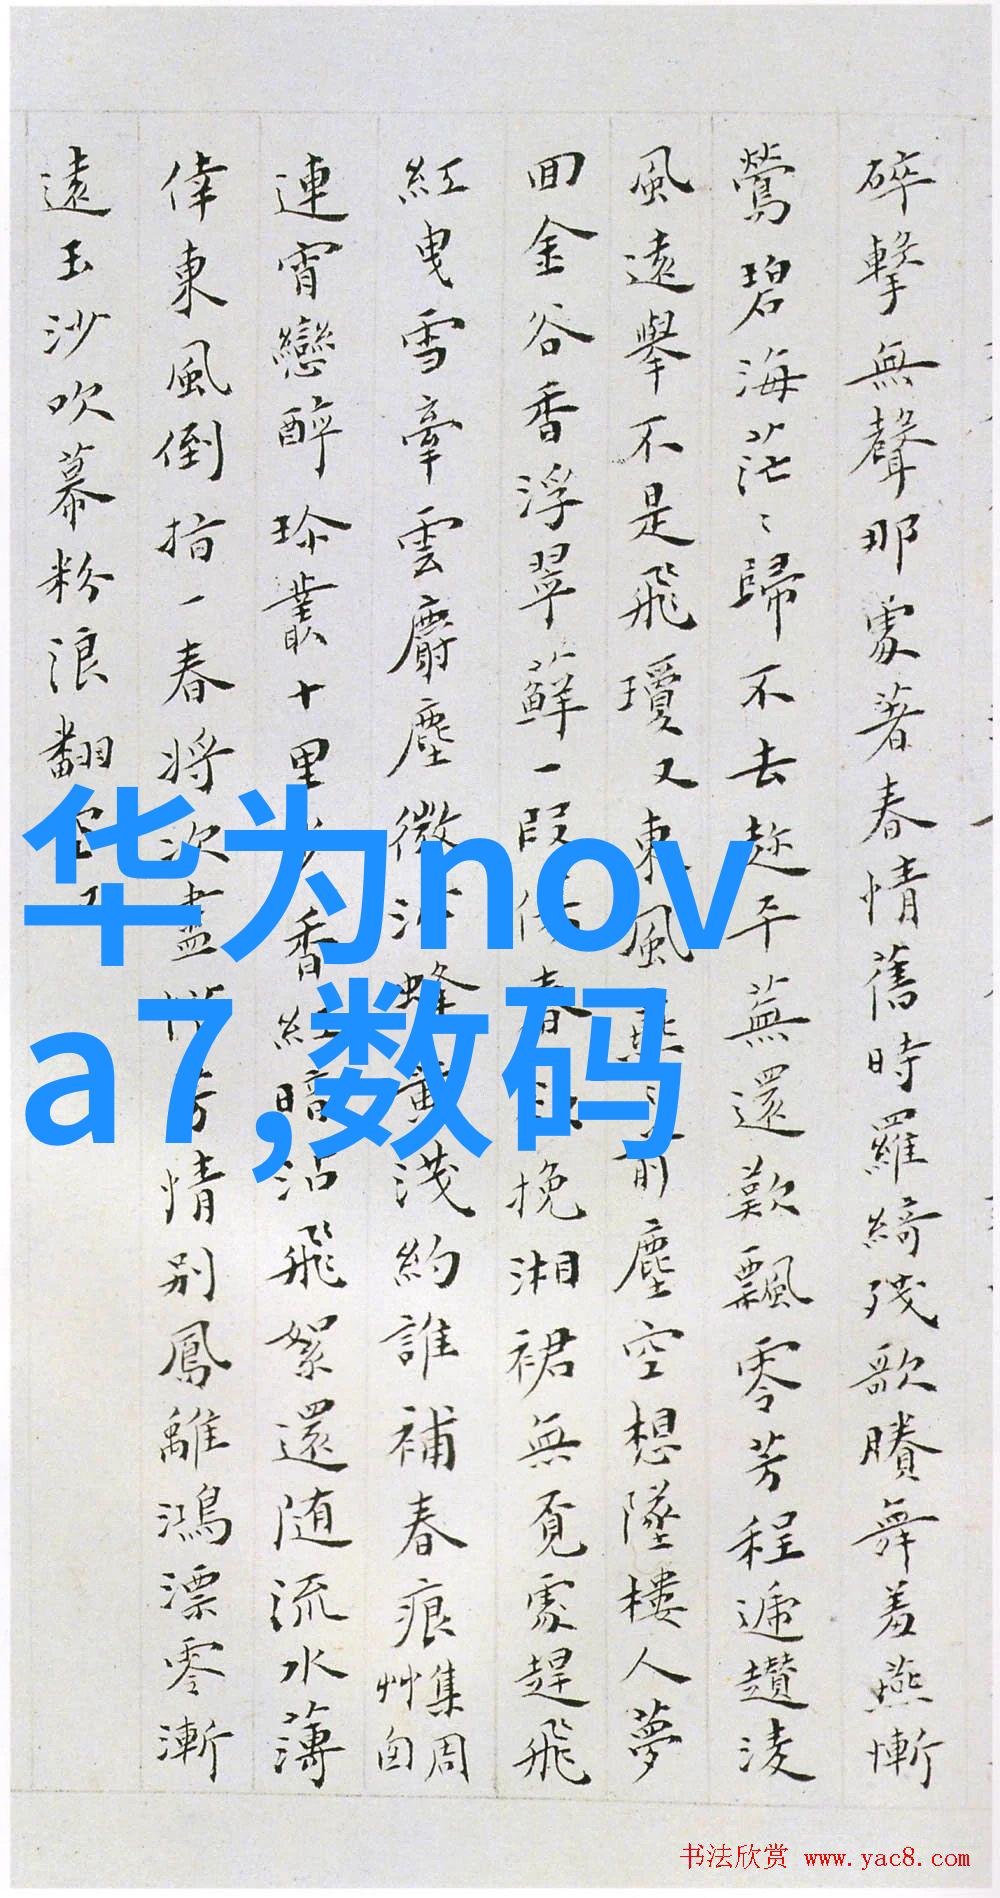 碎擊無聲那處著春情舊時羅綺殘歌賸舞羞燕慚
鶯碧海茫〻歸不去趂平蕪還歎飄零芳程遞趲淩
風遠擧不是飛瓊又東風燕 前塵空想墜樓人夢
回金谷香浮翠蘚一段 春 挽湘裙無覓處趕飛
紅曳雪牽雲麝塵微 蜂黃淺約誰補春痕
集周
艸囪
連霄戀醉珍叢十里 香紅暗沾飛絮還随流水薄
倖東風倒指一春將次盡 芳情別鳳離鴻漂零漸
遠玉沙吹幕粉浪翻空
华为nov
a7,数码
书法欣赏 www.yac8.com